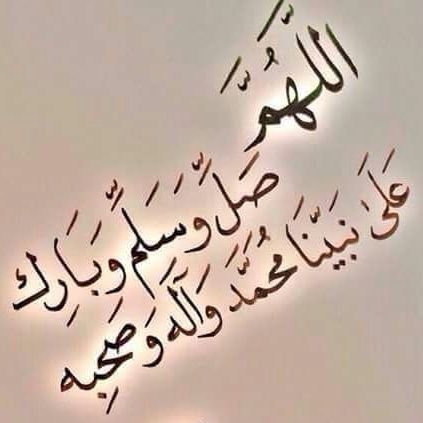 اللَّهُمَّ
صَلِّ وَسَلِّمْ وَبَارِك
عَلَى نَبِيِّنَا مُحَمَّد وَآلِه وَصَحْبِه